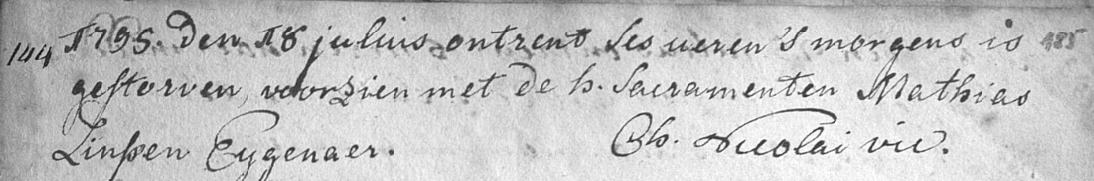 144 1795. den 18 julius ontrent ses ueren 's morgens is 185
gestorven, voorzien met de h. Sacramenten Mathias
Linssen Eygenaer. Ch. Nicolai vic.